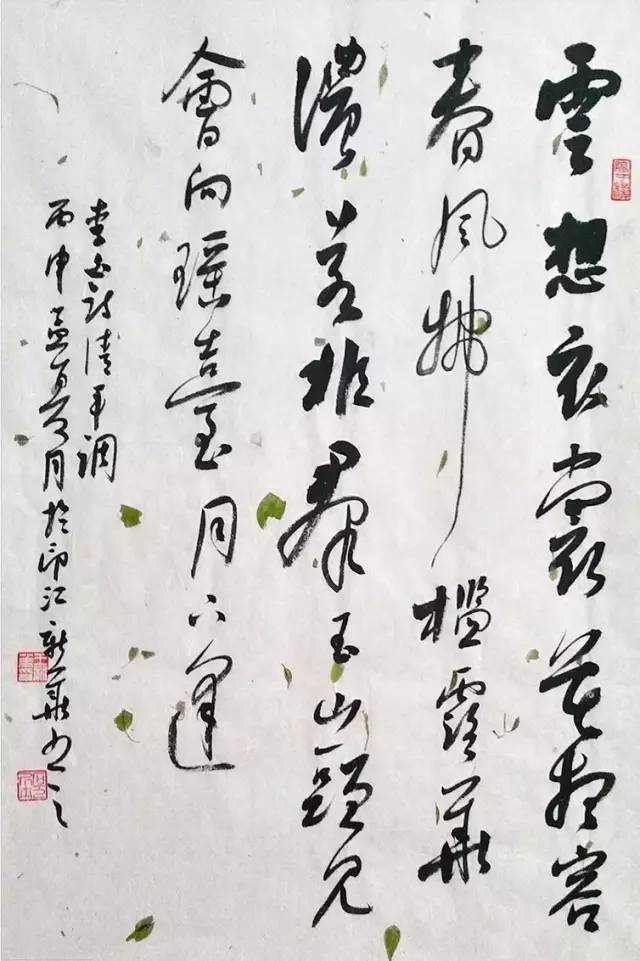 雲想衣裳花想容
春風拂檻露華
濃若非羣玉山頭見
會向瑤臺月下逢
李白詩清平調
丙申孟夏月於印江新華書之